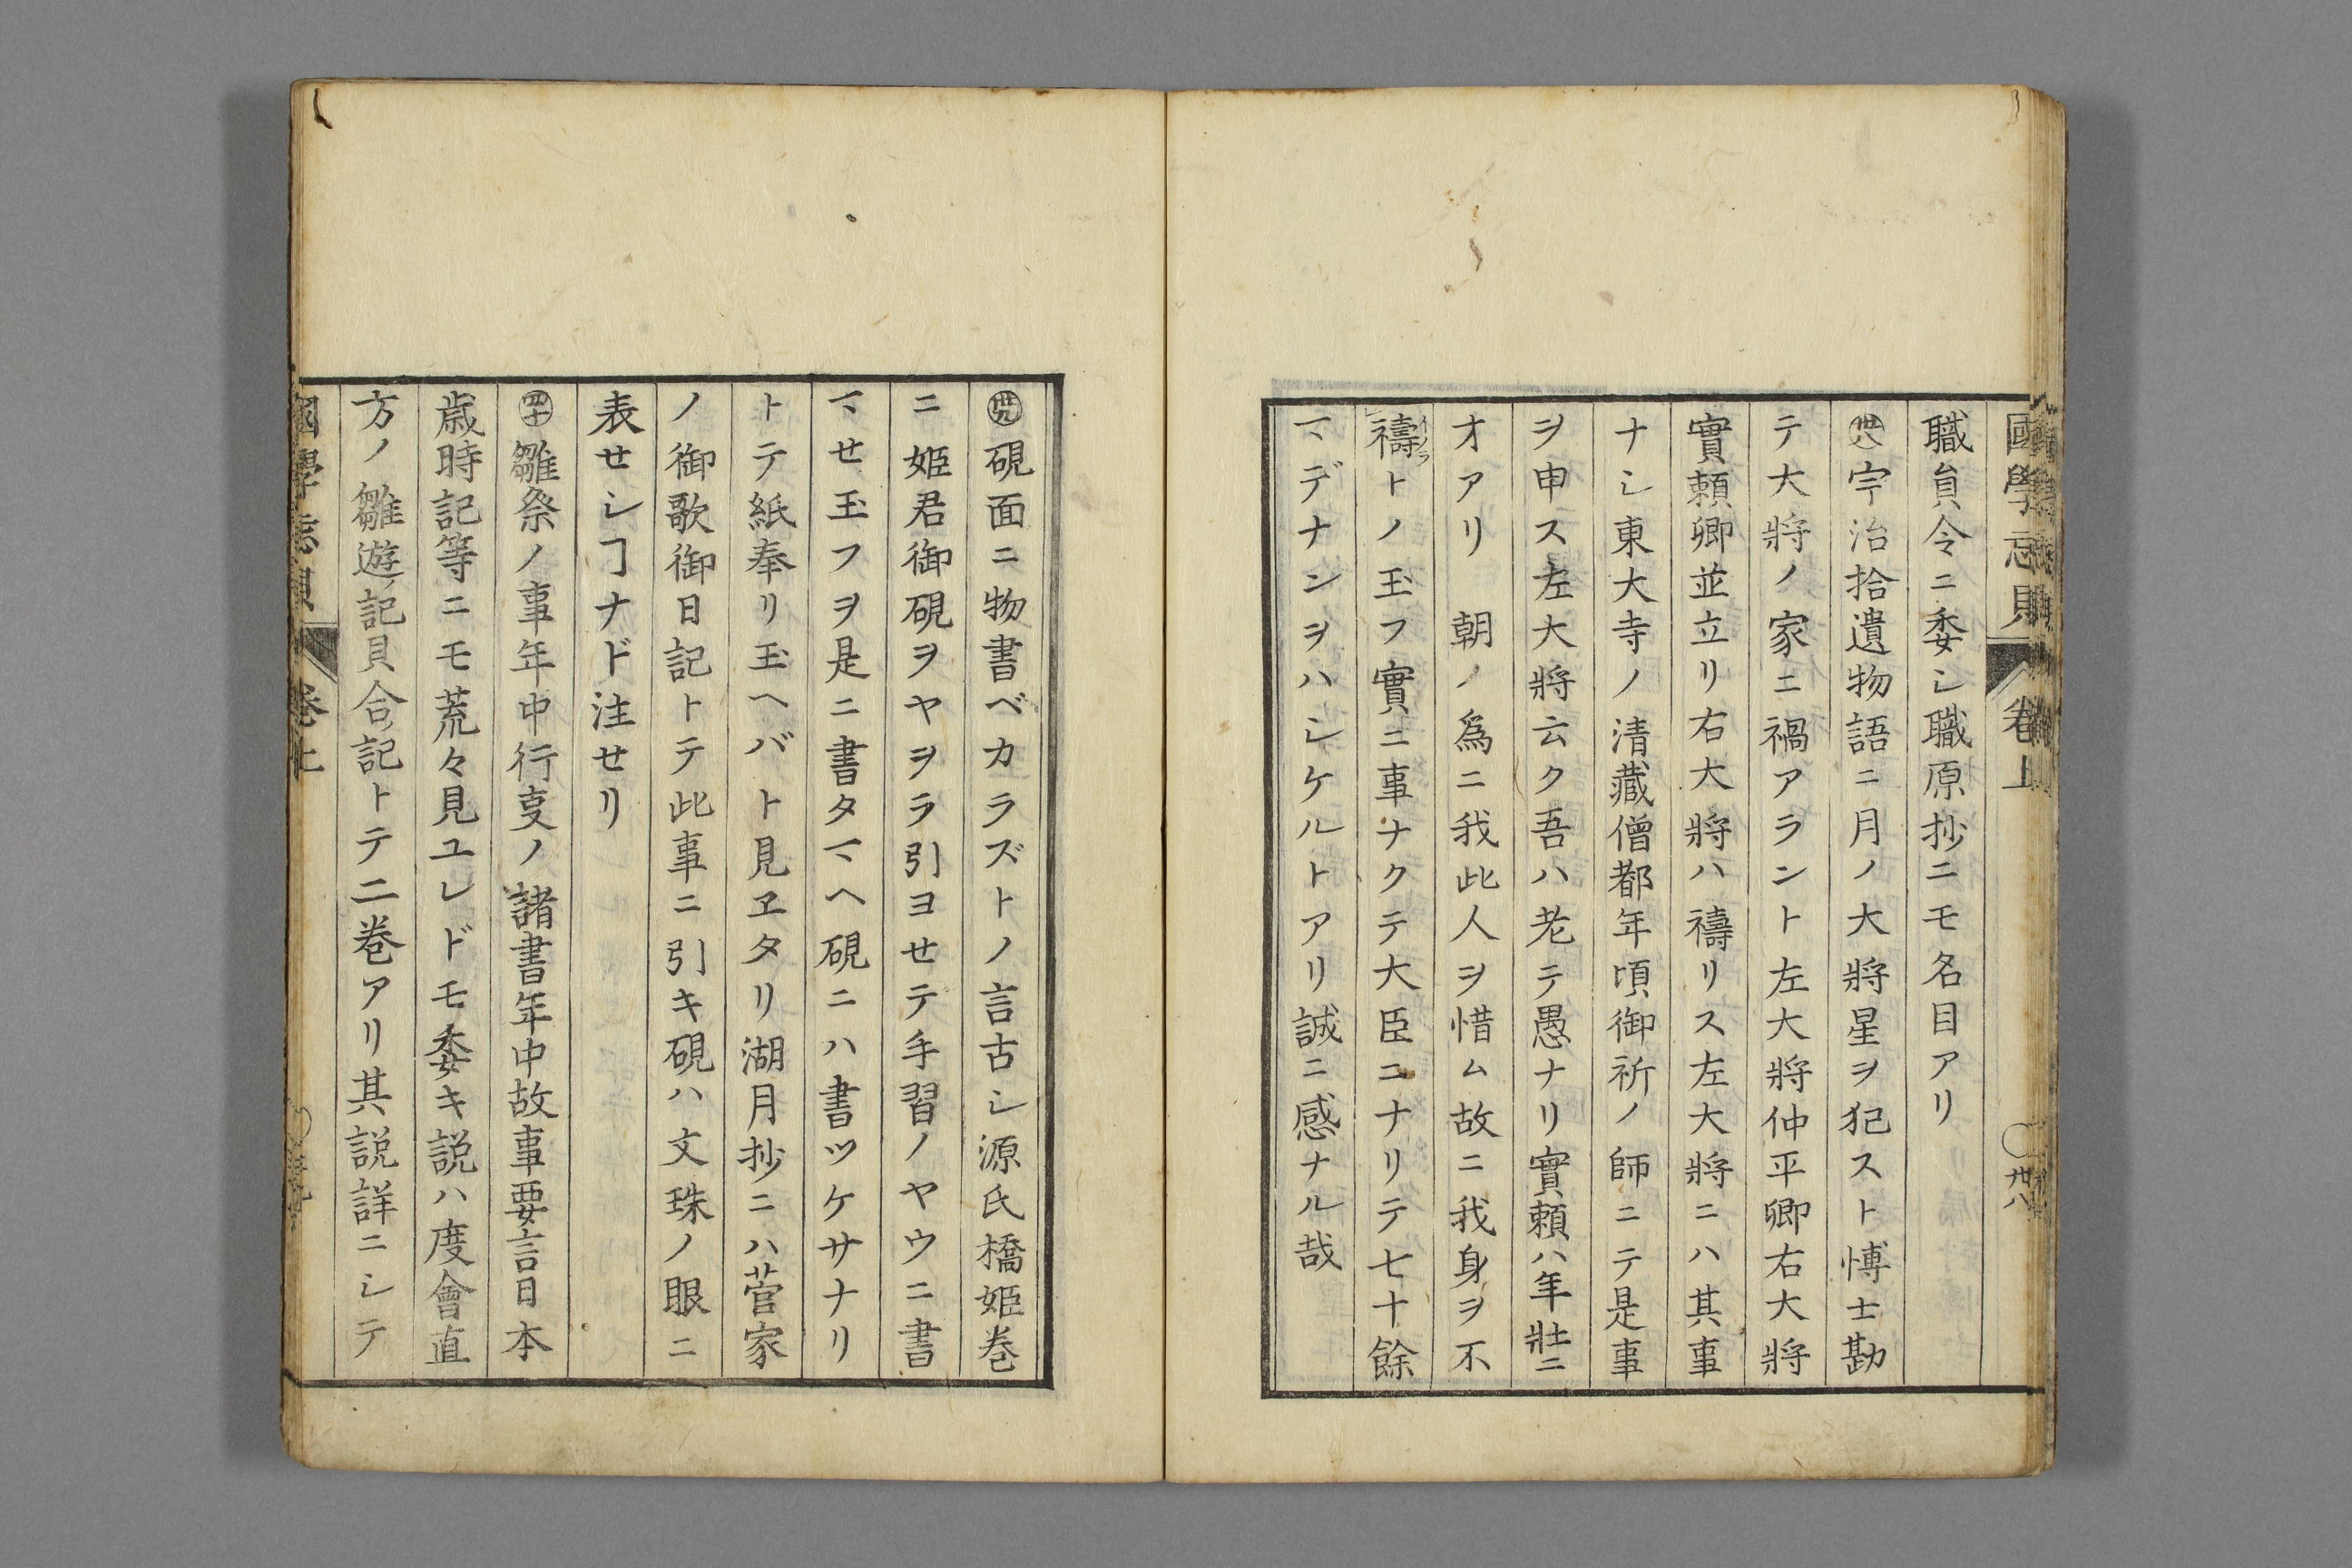 國學忘貝 卷上 〇卅八
職員令ニ委シ職原抄ニモ名目アリ
㊳宇治拾遺物語ニ月ノ大將星ヲ犯スト博士勘
テ大將ノ家ニ禍アラント左大將仲平卿右大將
實頼卿並立リ右大將ハ禱リス左大將ニハ其事
ナシ東大寺ノ清藏僧都年頃御祈ノ師ニテ是事
ヲ申ス左大將云ク吾ハ老テ愚ナリ實頼ハ年壯ニ
オアリ 朝ノ爲ニ我此人ヲ惜ム故ニ我身ヲ不
禱トノ玉フ實ニ事ナクテ大臣ニナリテ七十餘
マデナンヲハシケルトアリ誠ニ感ナル哉
㊴硯面ニ物書ベカラズトノ言古シ源氏橋姫巻
ニ姫君御硯ヲヤヲラ引ヨセテ手習ノヤウニ書
マセ玉フヲ是ニ書タマヘ硯ニハ書ツケサナリ
トテ紙奉リ玉ヘバト見ヱタリ湖月抄ニハ菅家
ノ御歌御日記トテ此事ニ引キ硯ハ文珠ノ眼ニ
表セシヿナド注セリ
㊵雛祭ノ事年中行叓ノ諸書年中故事要言日本
歳時記等ニモ荒々見ユレドモ委キ説ハ度會直
方ノ雛遊ノ記貝合ノ記トテ二巻アリ其説詳ニシテ
國學忘貝 卷上